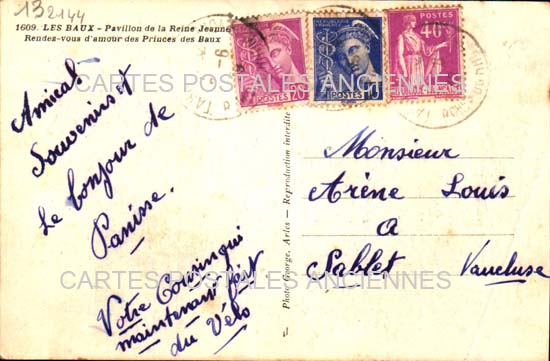 132144
1609. LES BAUX - Pavillon de la Reine Jeanne
Rendes-vous d'amour des Princes des Baux
POSTES 20
10
POSTES
40
CARTES POSTALES ANCIENNES
Amicals
Souvenirs et
Le bonjour de
Panisse.
Votre Cousin qui
maintenant fait
du Vélo
Photo George, Arles - Reproduction interdite
Monsieur
Arène Louis
a
Sablet Vaucluse
CARTES POSTALES ANCIENNES